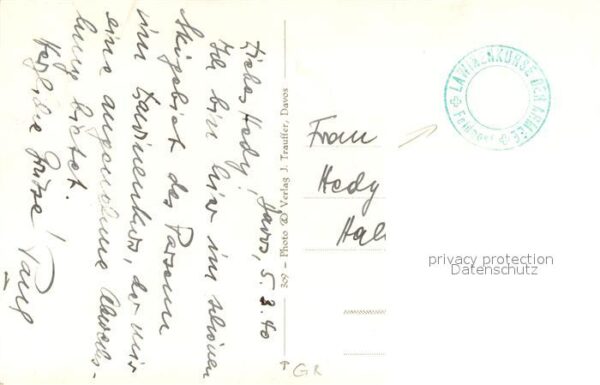 Davos, 5.3.40
Liebes Hedy!
Ich bin hier im schönen
Skigebiet des Parsenn
im Lawinenkurs, der mir
eine angenehme Abwechs-
lung bietet.
Herzliche Grüsse! Paul
369 – Photo © Verlag J. Trauffer, Davos
Frau
Hedy
LAWINENKURSE DER ARMEE
Feldpost
privacy protection
Datenschutz
GR